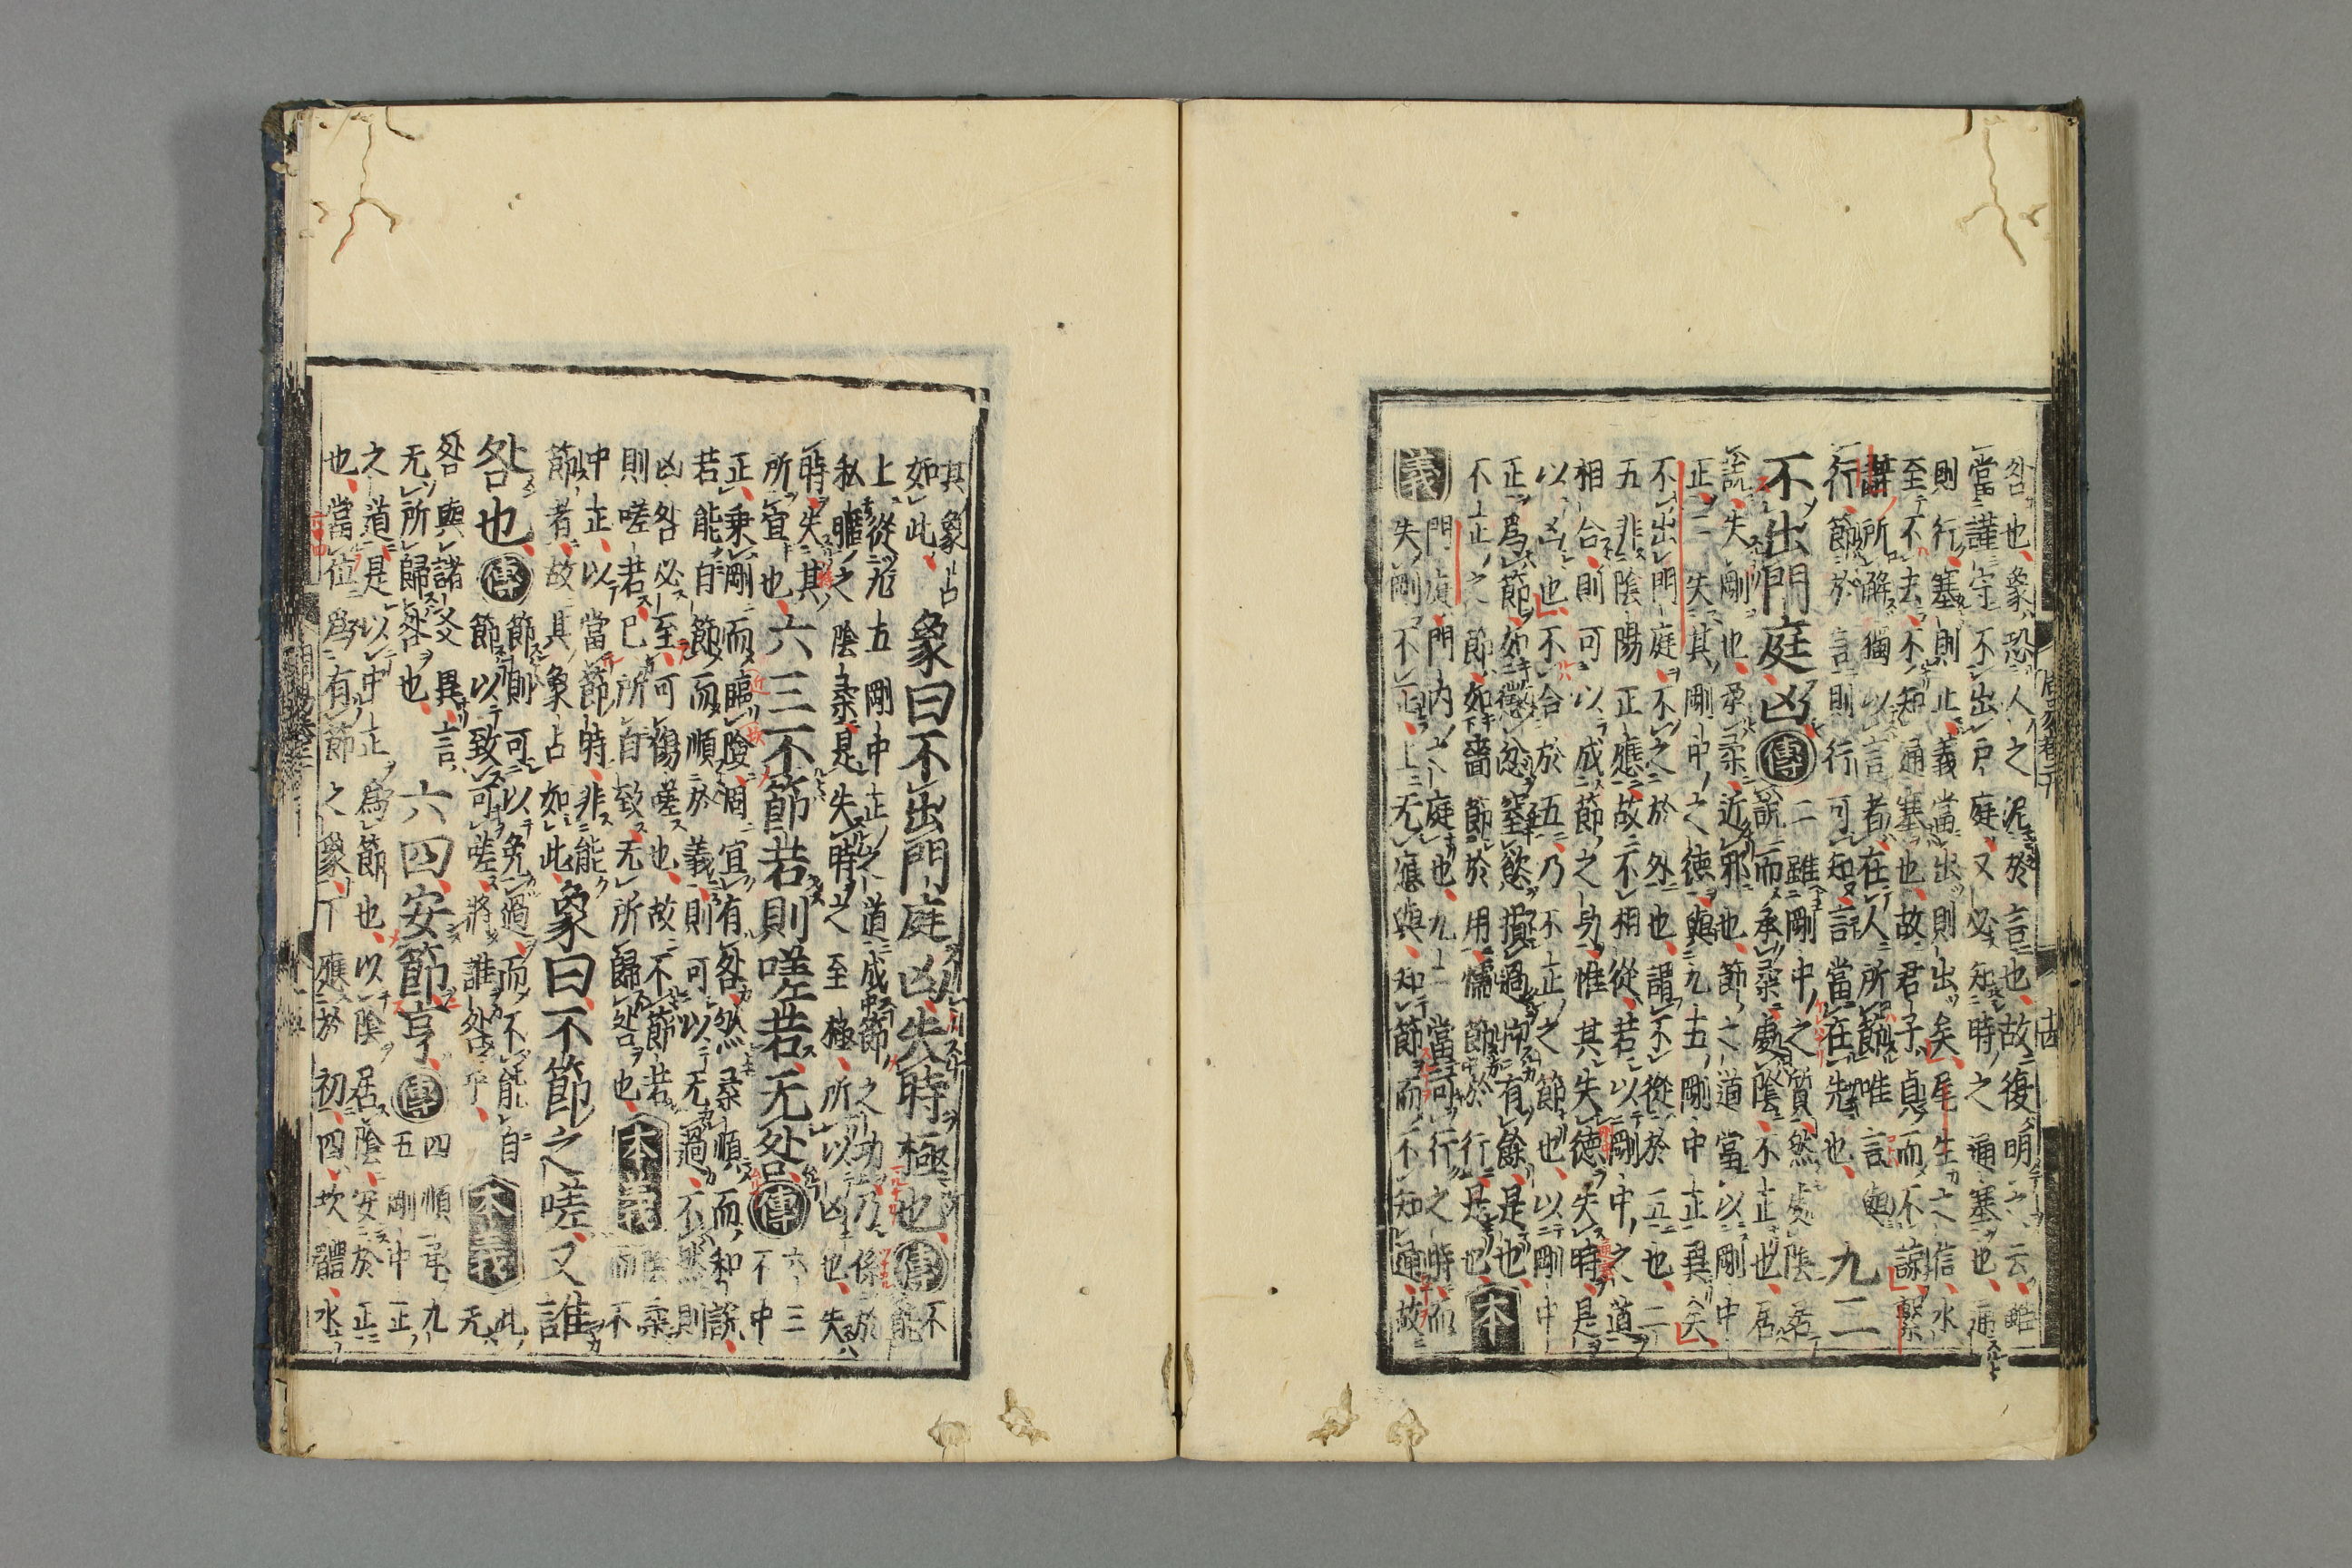 咎也象恐人之泥於言也故復明之云雖
當謹守不出戶庭又必知時之通塞也通
則行塞則止義當出則出矣尾生之信水
至不去不知通塞也故君子貞而不諒繫
辭所解獨以言者在人所節唯言與
行節於言則行可知言當在先也
九二
不出門庭凶
傳
二雖剛中之質然處陰居
說而承柔處陰不正也居
說失剛也承柔近邪也節之道當以剛中
正二失其剛中之德與九五剛中正異矣
不出門庭不之於外也謂不從於五也二
五非陰陽正應故不相從若以剛中之道
相合則可以成節之功惟其失德失時是
以凶也不合於五乃不正之節也以剛中
正爲節如懲忿窒慾損過抑有餘是也
不正之節如嗇節於用懦節於行是也
本
義
門庭門內之庭也九二當可行之時而
失剛不正上无應與知節而不知通故
其象占
如此
象曰不出門庭凶失時極也
傳
不能
上從九五剛中正之道成節之功乃係於
私暱之陰柔是失時之至極所以凶也失
時失其
所宜也
六三不節若則嗟若无咎
傳
六三
不中
正乘剛而臨險固宜有咎然柔順而和說
若能自節而順於義則可以无過不然則
凶咎必至可傷嗟也故不節若
則嗟若已所自致无所歸咎也
本義
陰柔
而不
中正以當節時非能
節者故其象占如此
象曰不節之嗟又誰
咎也
傳
節則可以免過而不能自
節以致可嗟將誰咎乎
本義
此
无
咎與諸爻異言
无所歸咎也
六四安節亨
傳
四順承九
五剛中正
之道是以中正爲節也以陰居陰安於正
也當位爲有節之象下應於初四坎體水